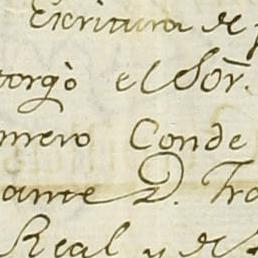 Escritura de
torgò el Sor.
imero Conde
ante D. Fra
Real y de